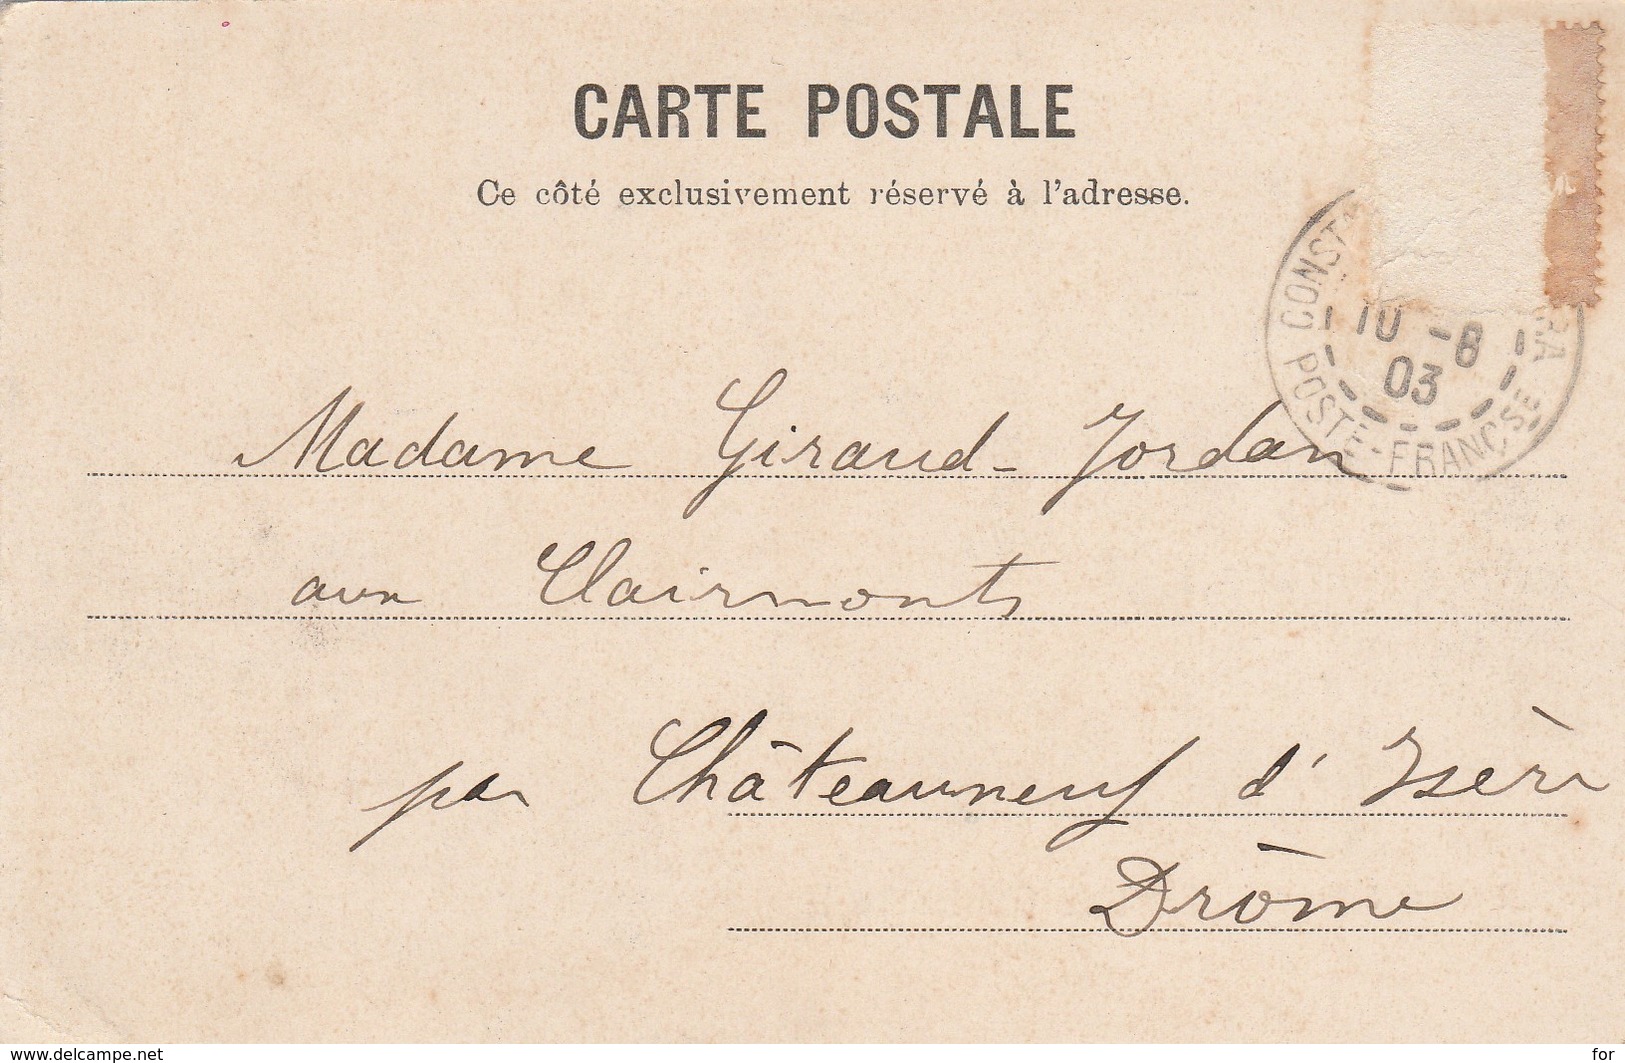 CARTE POSTALE
Ce côté exclusivement réservé à l'adresse.
CONST
RA
10 -8
03
POSTE-FRANÇSE
Madame Giraud-Jordan
aux Clairmonts
par Châteauneuf d'Isère
Drôme
www.delcampe.net
for